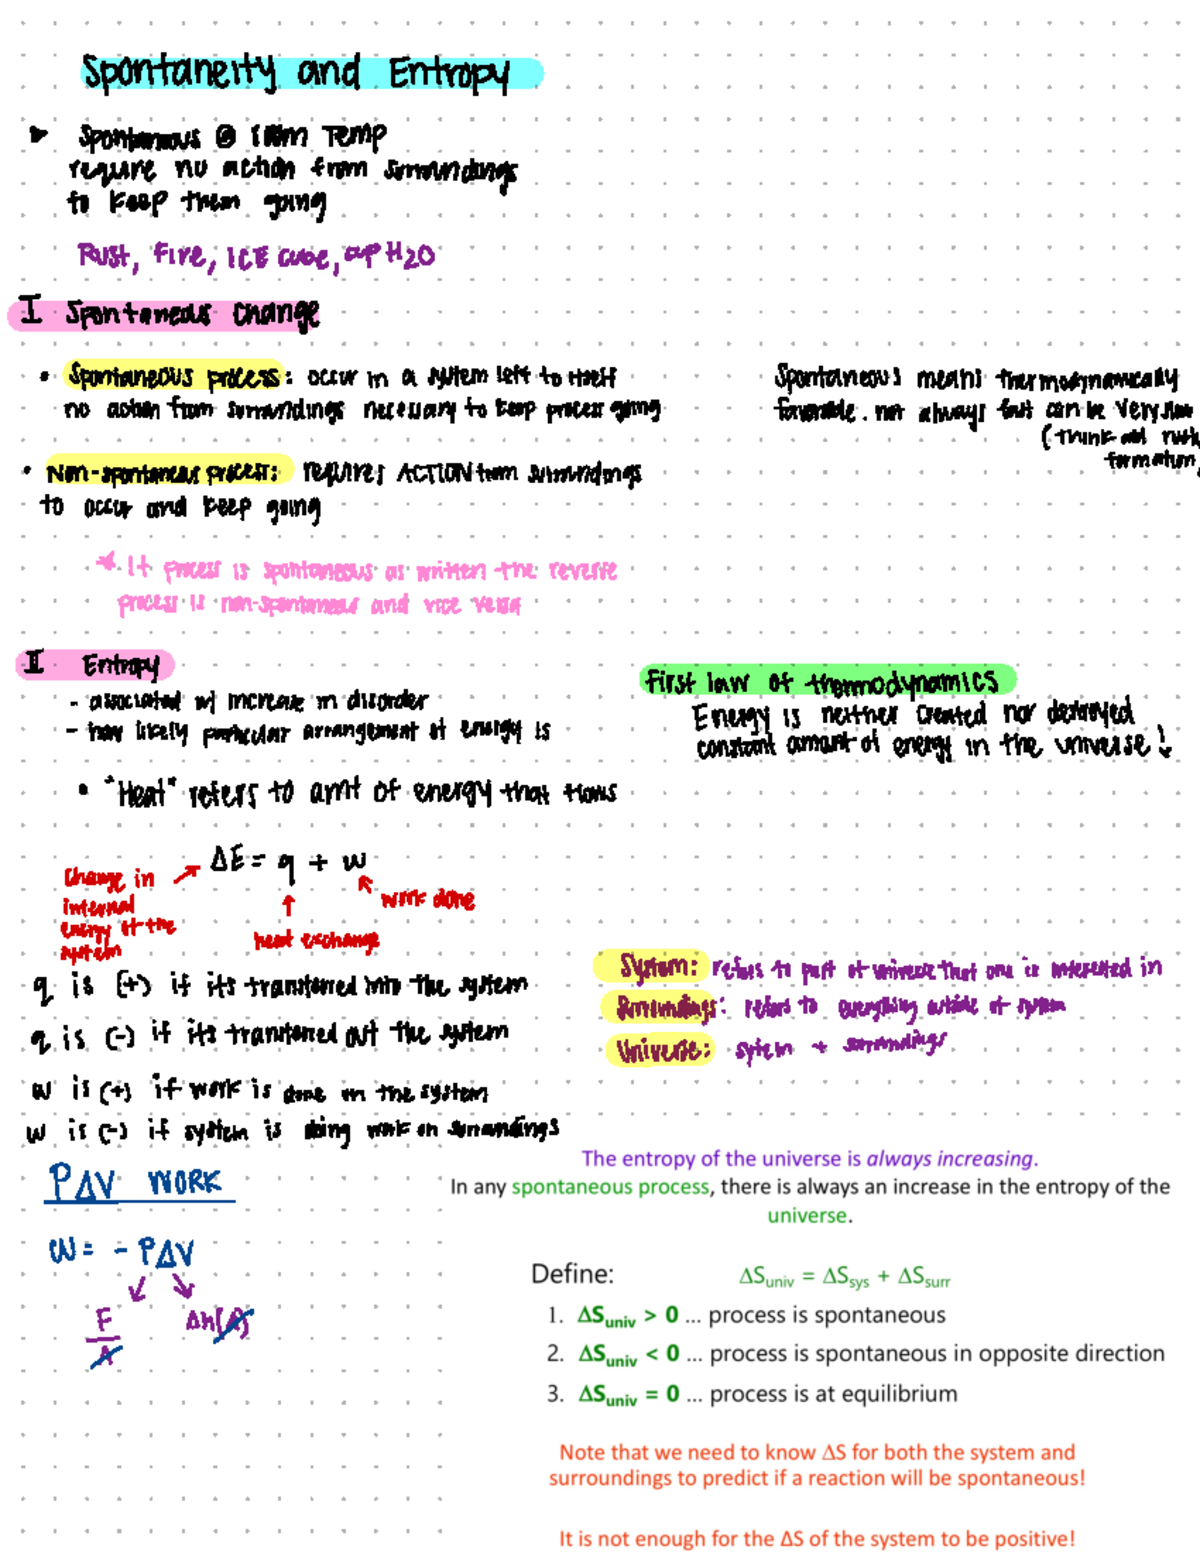 Spontaneity and Entropy
Spontaneous @ room Temp
require no action from surroundings
to keep them going
Rust, Fire, ICE cube, cup H2O
I Spontaneous Change
• Spontaneous process: occur in a system left to itself
no action from surroundings necessary to keep process going
Spontaneous means thermodynamically
favorable. not always fast can be very slow
(think abt rust
formation
• Non-spontaneous process: requires ACTION from surroundings
to occur and keep going
* If process is spontaneous as written the reverse
process is non-spontaneous and vice versa
II Entropy
- associated w/ increase in disorder
- how likely particular arrangement of energy is
• "Heat" refers to amt of energy that flows
First law of thermodynamics
Energy is neither created nor destroyed
constant amount of energy in the universe!
ΔE = q + w
Change in
internal
energy of the
system
heat exchange
work done
q is (+) if its transferred into the system
q is (-) if its transferred out the system
w is (+) if work is done on the system
w is (-) if system is doing work on surroundings
System: refers to part of universe that one is interested in
Surroundings: refers to everything outside of system
Universe: sytem + surroundings
PΔV WORK
W = - PΔV
F
A
Δh(A)
The entropy of the universe is always increasing.
In any spontaneous process, there is always an increase in the entropy of the
universe.
Define: ΔSuniv = ΔSsys + ΔSsurr
1. ΔSuniv > 0 ... process is spontaneous
2. ΔSuniv < 0 ... process is spontaneous in opposite direction
3. ΔSuniv = 0 ... process is at equilibrium
Note that we need to know ΔS for both the system and
surroundings to predict if a reaction will be spontaneous!
It is not enough for the ΔS of the system to be positive!